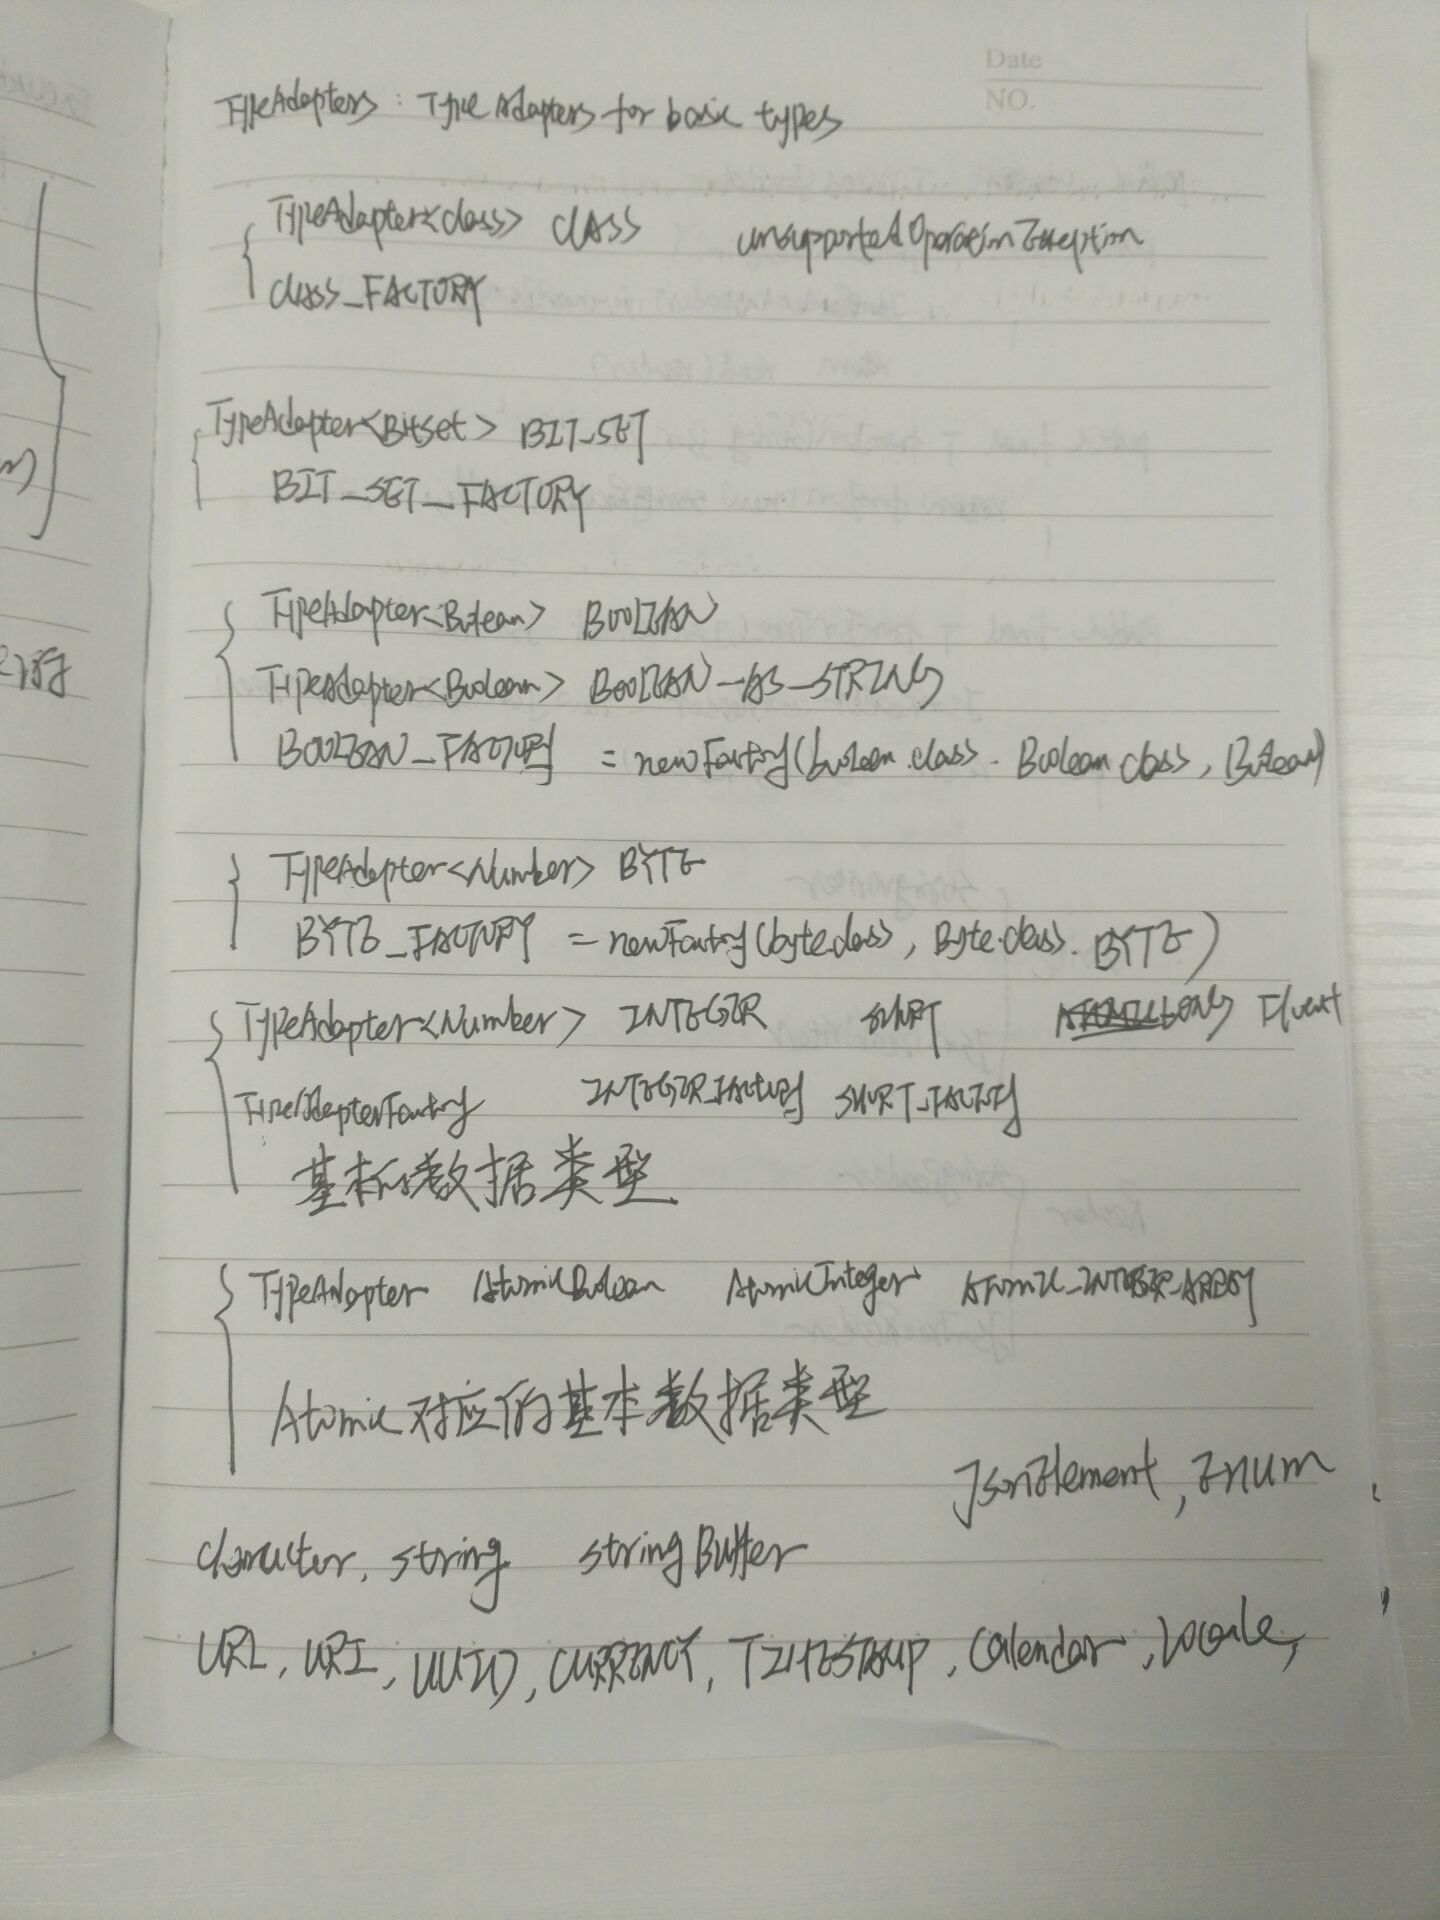 Date
NO.
TypeAdapters : Type Adapters for basic types
TypeAdapter<Class> CLASS unsupportedOperationException
CLASS_FACTORY
TypeAdapter<BitSet> BIT_SET
BIT_SET_FACTORY
TypeAdapter<Boolean> BOOLEAN
TypeAdapter<Boolean> BOOLEAN_AS_STRING
BOOLEAN_FACTORY = newFactory(boolean.class. Boolean class, Boolean)
TypeAdapter<Number> BYTE
BYTE_FACTORY = newFactory(byte.class, Byte.class. BYTE)
TypeAdapter<Number> INTEGER SHORT
TypeAdapterFactory INTEGER_FACTORY SHORT_FACTORY
基本的数据类型
TypeAdapter AtomicBoolean AtomicInteger ATOMIC_INTEGER_ARRAY
Atomic对应的基本数据类型
JsonElement, Enum
Character, string stringBuffer
URL, URI, UUID, CURRENCY, TIMESTAMP, Calendar, Locale,